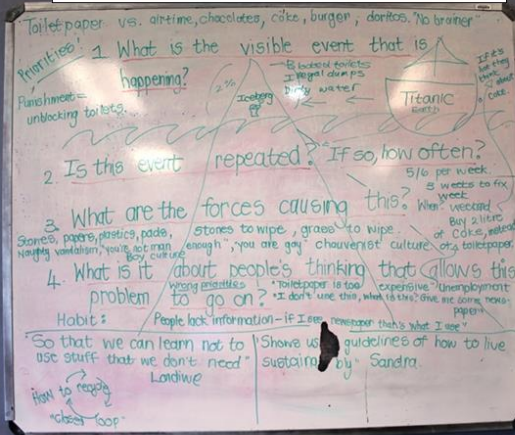 Toilet paper vs. airtime, chocolates, coke, burger, doritos. "No brainer"
Priorities!
1 What is the visible event that is
happening?
Blocked toilets
Illegal dumps
Dirty water
2%
Iceberg
Titanic
Earth
If it's
hot they
think
about
coke.
Punishment =
unblocking toilets...
2. Is this event repeated? If so, how often?
5/6 per week.
3 weeks to fix
week
3. What are the forces causing this? When? weekend
Buy 2 litre
of coke, instead
of toiletpaper.
Stones, papers, plastics, pads, stones to wipe, grass to wipe.
Naughty vandalism, "you're not man enough", "you are gay" chauvenist culture
Boy culture
4. What is it about people's thinking that allows this
problem to go on?
Wrong priorities! "Toiletpaper is too expensive" Unemployment
"I don't use this, what is this? Give me some news-
paper"
Habit: People lack information - if I see newspaper that's what I use"
"So that we can learn not to
use stuff that we don't need"
Londiwe
"Shows us guidelines of how to live
sustainably" Sandra.
How to recycle
"Closed loop"